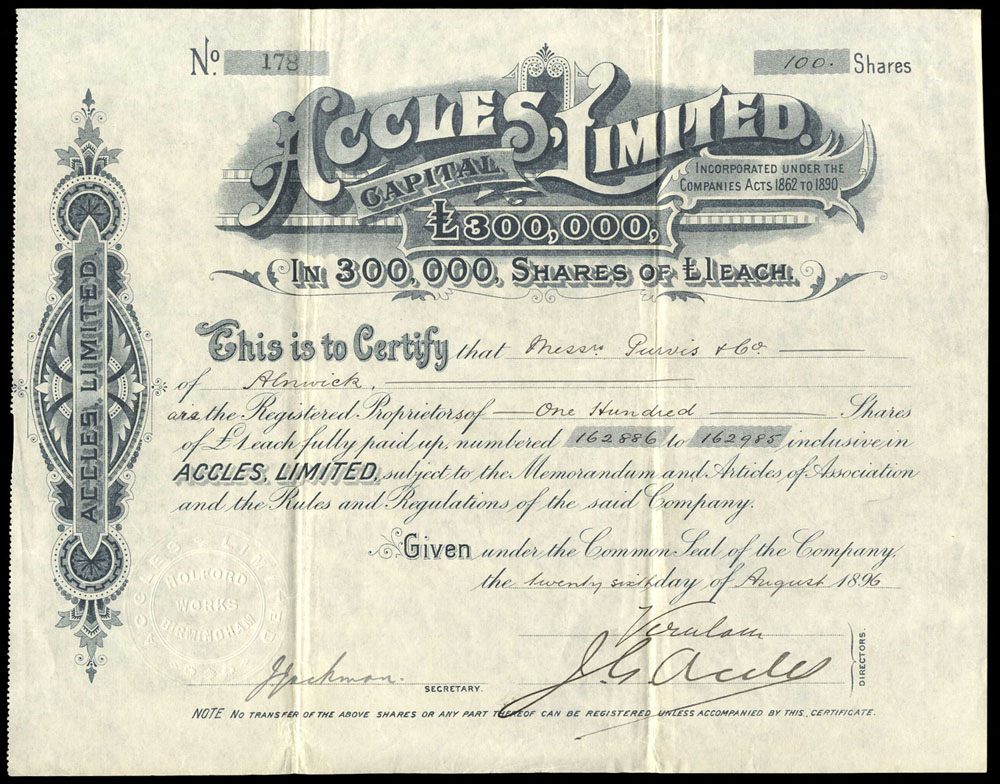 No. 178
100. Shares
ACCLES, LIMITED.
CAPITAL
INCORPORATED UNDER THE
COMPANIES ACTS 1862 TO 1890
£300,000,
IN 300,000, SHARES OF £1 EACH.
ACCLES, LIMITED.
This is to Certify that Messrs Purvis & Co
of Alnwick,
are the Registered Proprietors of One Hundred Shares
of £1 each fully paid up, numbered 162886 to 162985 inclusive in
ACCLES, LIMITED, subject to the Memorandum and Articles of Association
and the Rules and Regulations of the said Company.
Given under the Common Seal of the Company,
the twenty sixth day of August 1896
ACCLES LIMITED
HOLFORD
WORKS
BIRMINGHAM
Verulam
J. G. Accles
DIRECTORS.
J Jackman.
SECRETARY.
NOTE NO TRANSFER OF THE ABOVE SHARES OR ANY PART THEREOF CAN BE REGISTERED UNLESS ACCOMPANIED BY THIS CERTIFICATE.